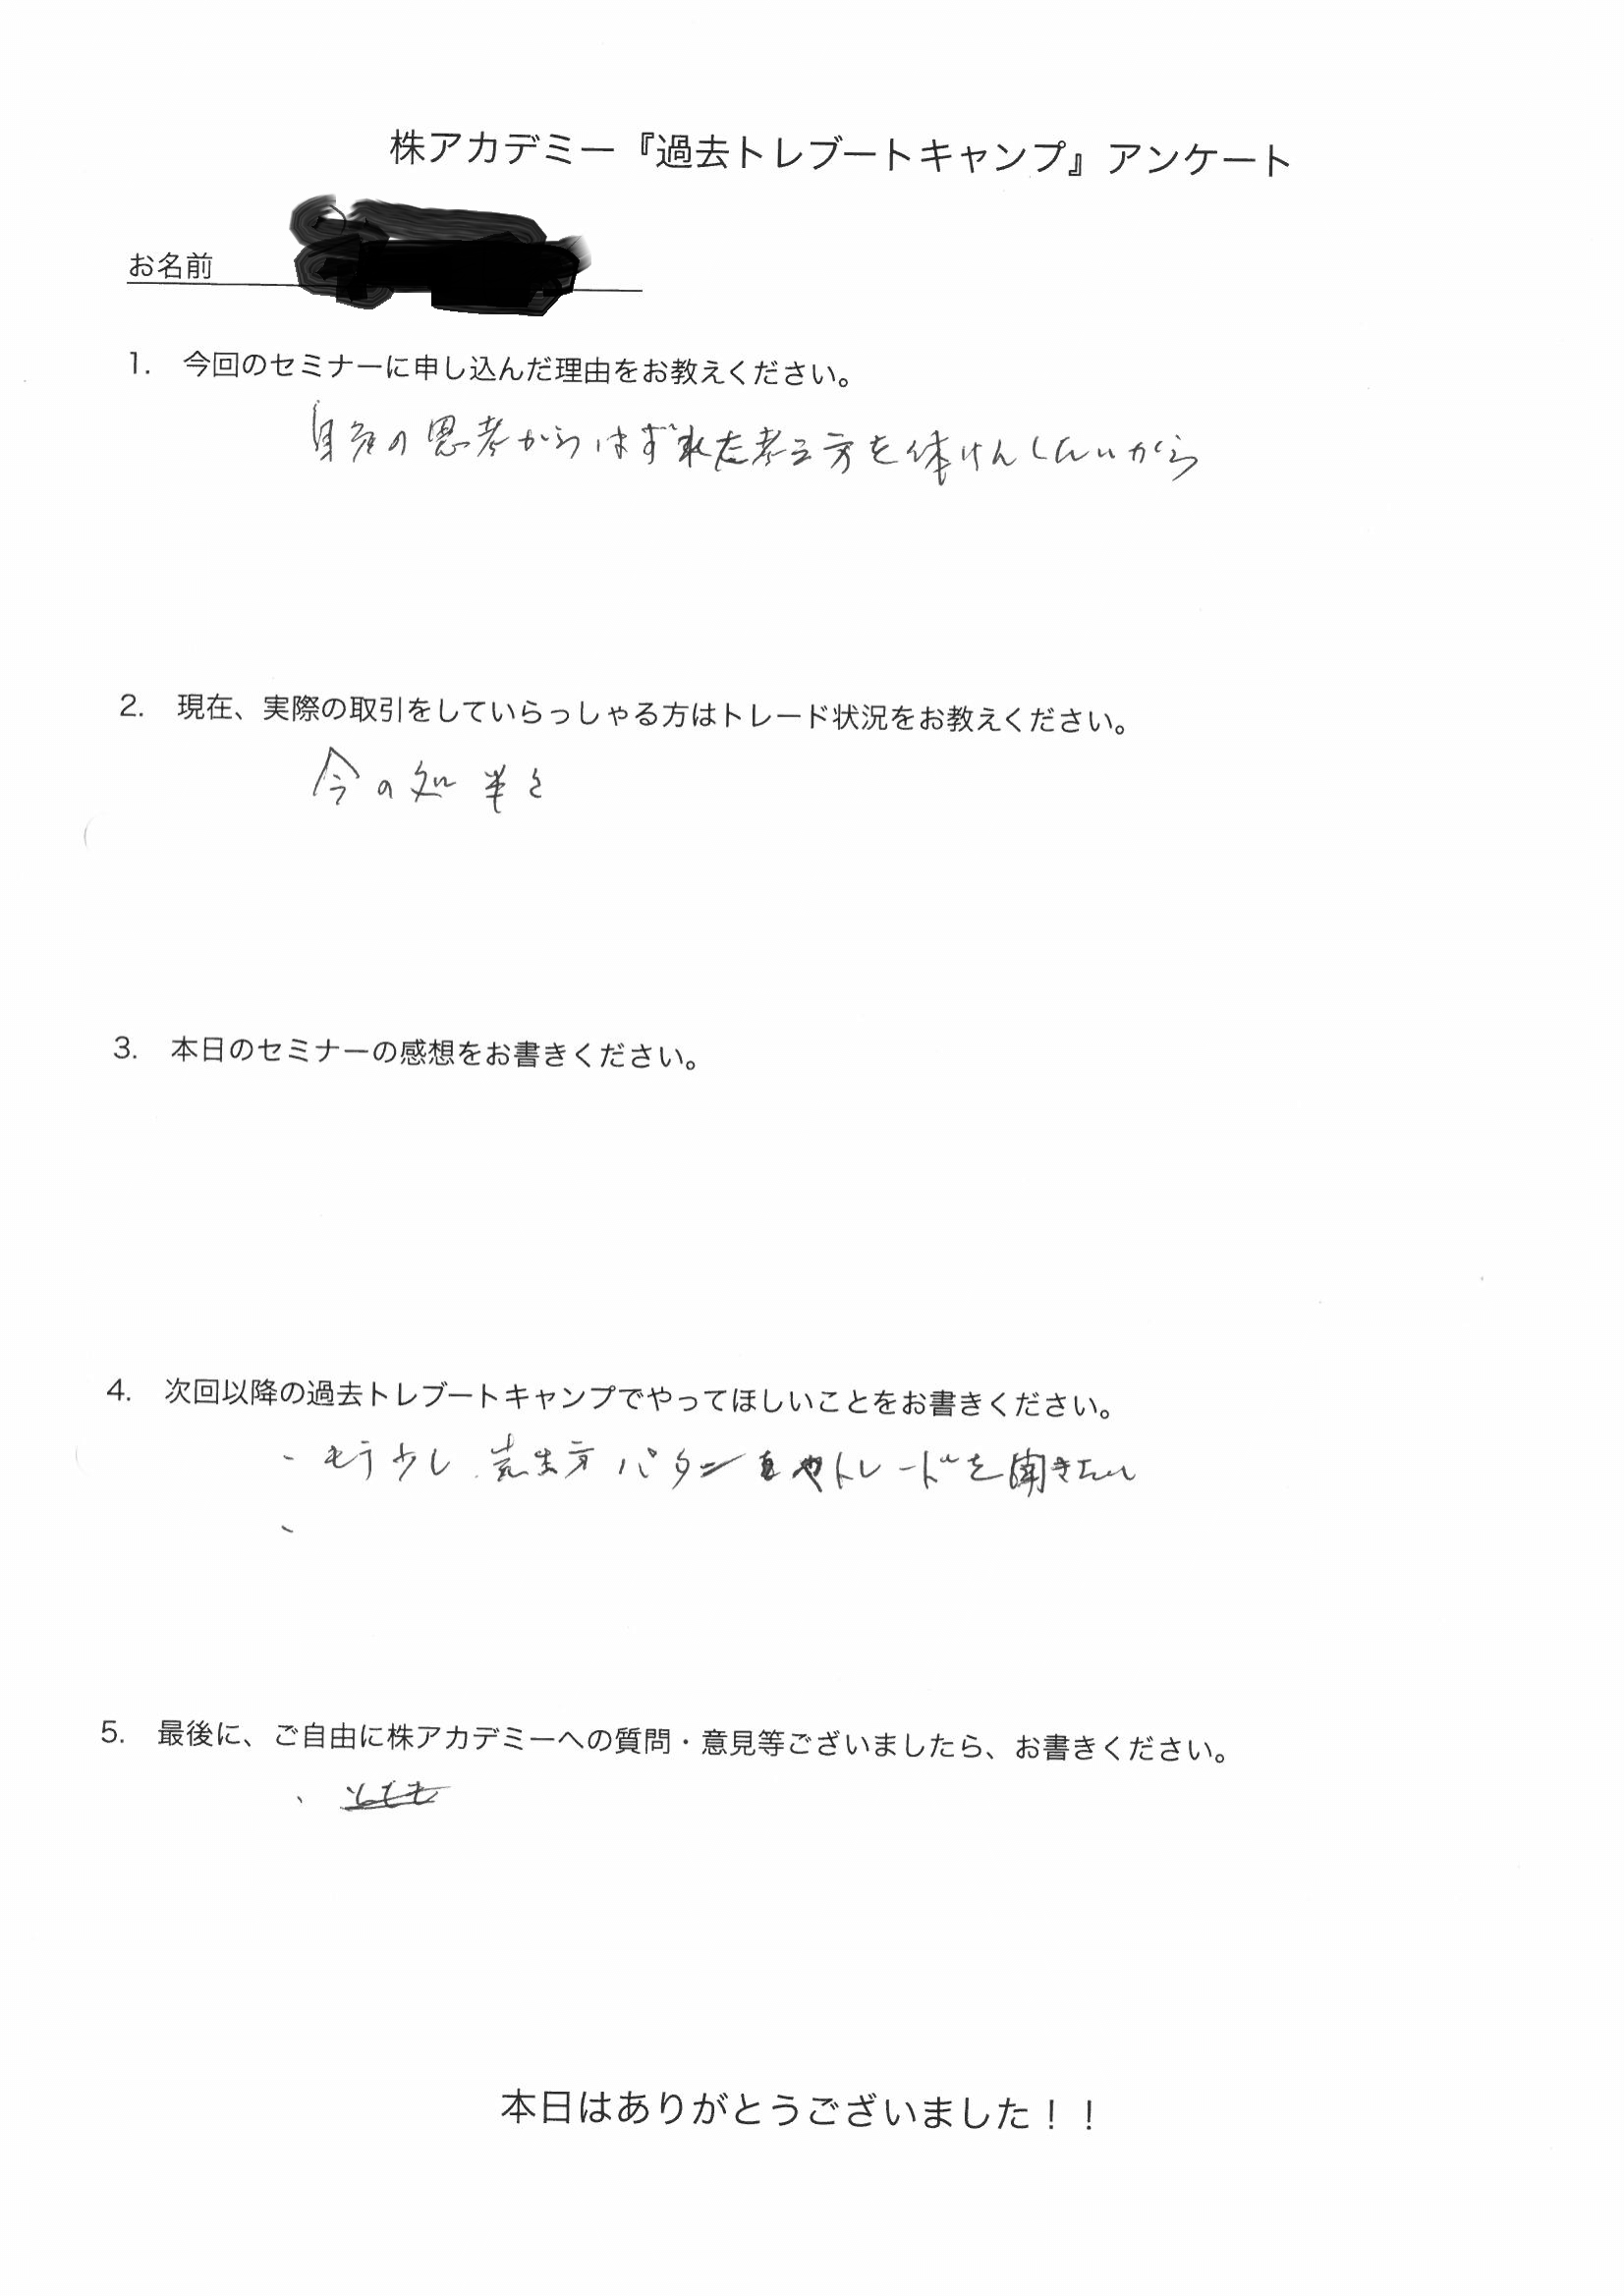 株アカデミー『過去トレブートキャンプ』アンケート
お名前
1. 今回のセミナーに申し込んだ理由をお教えください。
自身の思考からはずれた考え方を体けんしたいから
2. 現在、実際の取引をしていらっしゃる方はトレード状況をお教えください。
今の処 半々
3. 本日のセミナーの感想をお書きください。
4. 次回以降の過去トレブートキャンプでやってほしいことをお書きください。
、もう少し 先生方 パターンやトレードを聞きたい
、
5. 最後に、ご自由に株アカデミーへの質問・意見等ございましたら、お書きください。
、
本日はありがとうございました！！